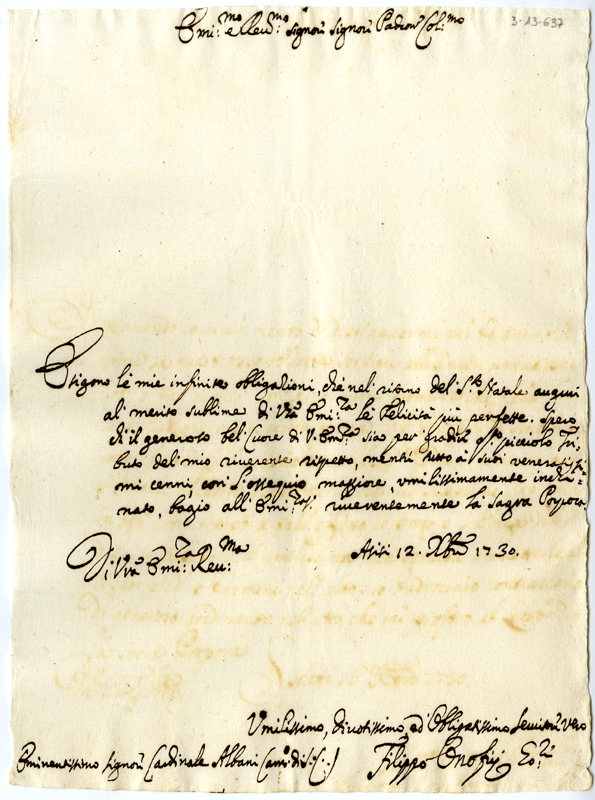 3-13-637
Emi:mo e Reu:mo Signor Signor Padron Col:mo
Esigono le mie infinite obligazioni, che nel ritorno del S.to Natale auguri
al merito sublime di Vra Emi:za le felicità più perfette. Spero
ch'il generoso bel Cuore di V. Em:za sia per gradire qsto picciolo Tri,
buto del mio riuerente rispetto, mentre tutto a' suoi veneratissi,
mi cenni, con l'ossequio maggiore, vmilissimamente inchi,
nato, bagio all'Emi:za S: riuerentemente la Sagra Porpora.
Di Vra Emi:za Reu:ma
Asisi 12. Xbre 1730.
Vmilissimo, diuotissimo, ed Obligatissimo Seruitore vero
Eminentissimo Signor Cardinale Albani (Cam: di S: C:)
Filippo